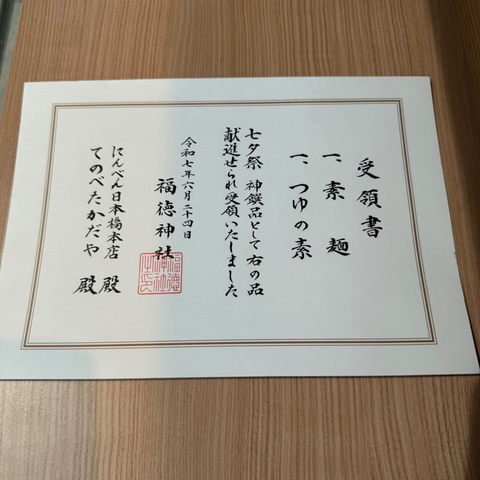 受領書
一、素麺
一、つゆの素
七夕祭 神饌品として右の品
献進せられ受領いたしました
令和七年六月二十四日
福徳神社
にんべん日本橋本店 殿
てのべたかだや 殿